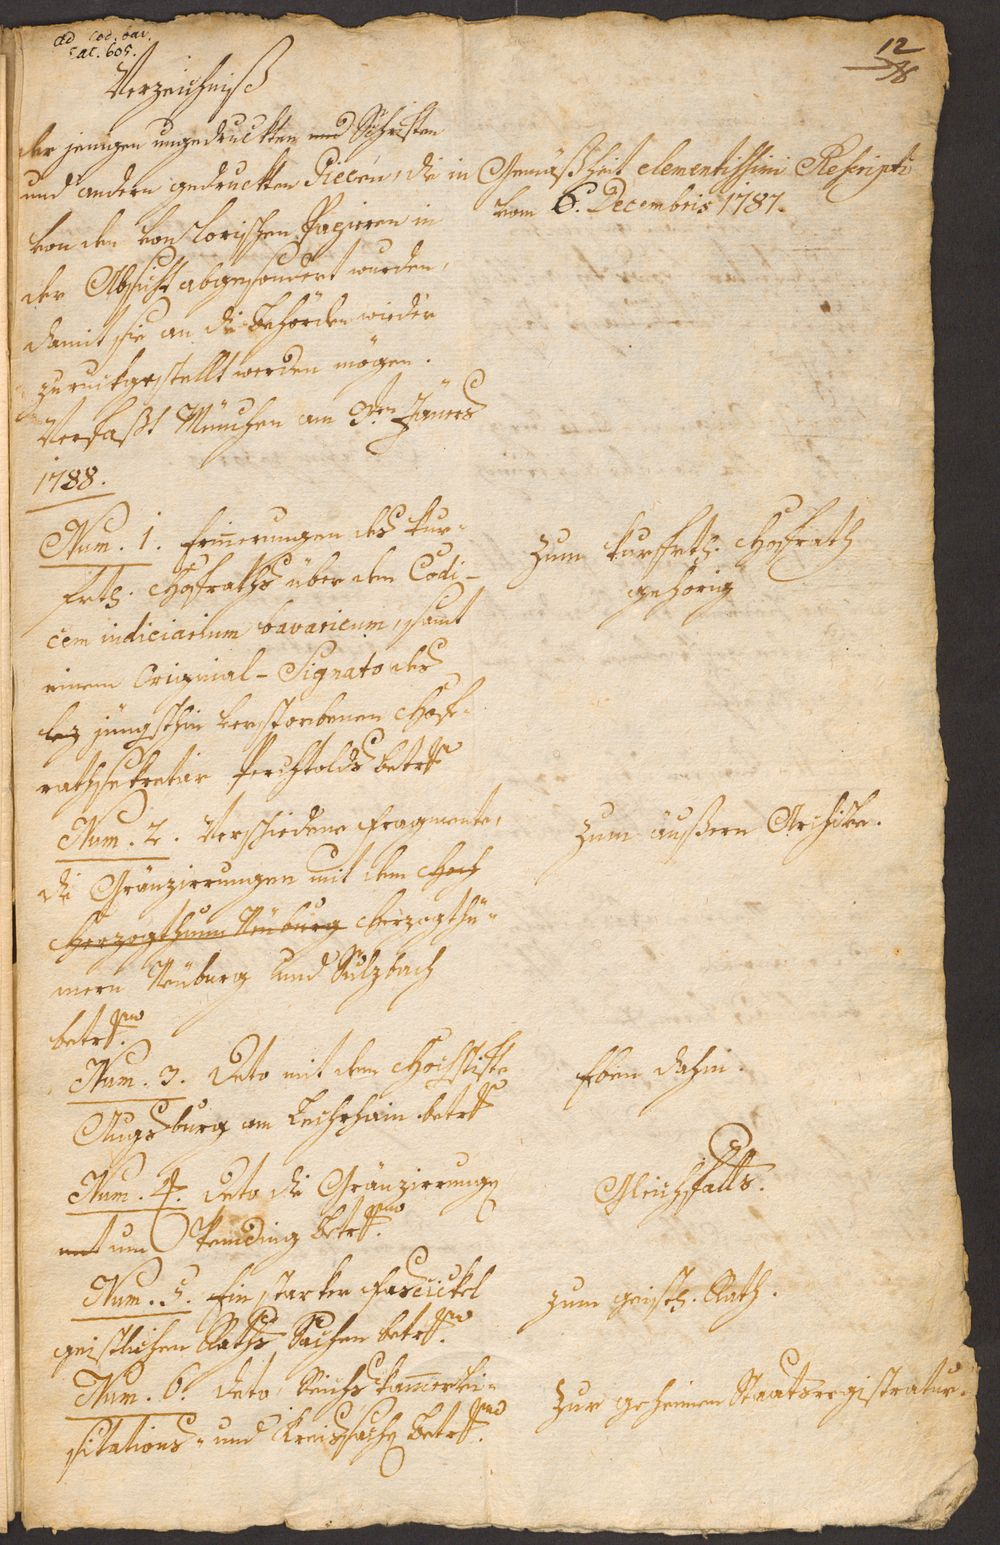 ad Cod. bav.
cat. 605.
12/8
Verzeichniß
der jenigen ungedruckten und Schriften
und andern gedruckten Piecen, die in Gemäßheit clementissimi Rescripti
vom 6. Decembris 1787.
von den von Lorischen Papieren in
der Absicht abgesondert wurden,
damit sie an die Behörden wieder
zuruckgestellt werden mögen.
Verfaßt München am 9ten Jäners
1788.
Num. 1. Erinnerungen des kur-
frtl. Hofraths über den Codi-
cem iudiciarium bavaricum, samt
einem Original-Signato des
jüngsthin verstorbenen Hof-
rathsekretär Perchtolds betrf
Zum kurfrtl. Hofrath
gehörig
Num. 2. Verschiedene Fragmente,
die Gränzirrungen mit dem Hoch
Herzogthum Neuburg Herzogthü-
mern Neuburg und Sulzbach
betrf.
Zum äußern Archive.
Num. 3. Deto mit dem Hochstift
Augsburg am Lechrhain betrf
Eben dahin.
Num. 4. Deto die Gränzirrungen
mit um betrf.
Gleichfalls.
Num. 5. Ein starker Fascickel
geistlichen Raths Sachen betrf.
Zum geistl. Rath.
Num. 6. Deto, Reichskammervi-
sitations- und Kreissachen betrf.
Zur geheimen Staatsregistratur.